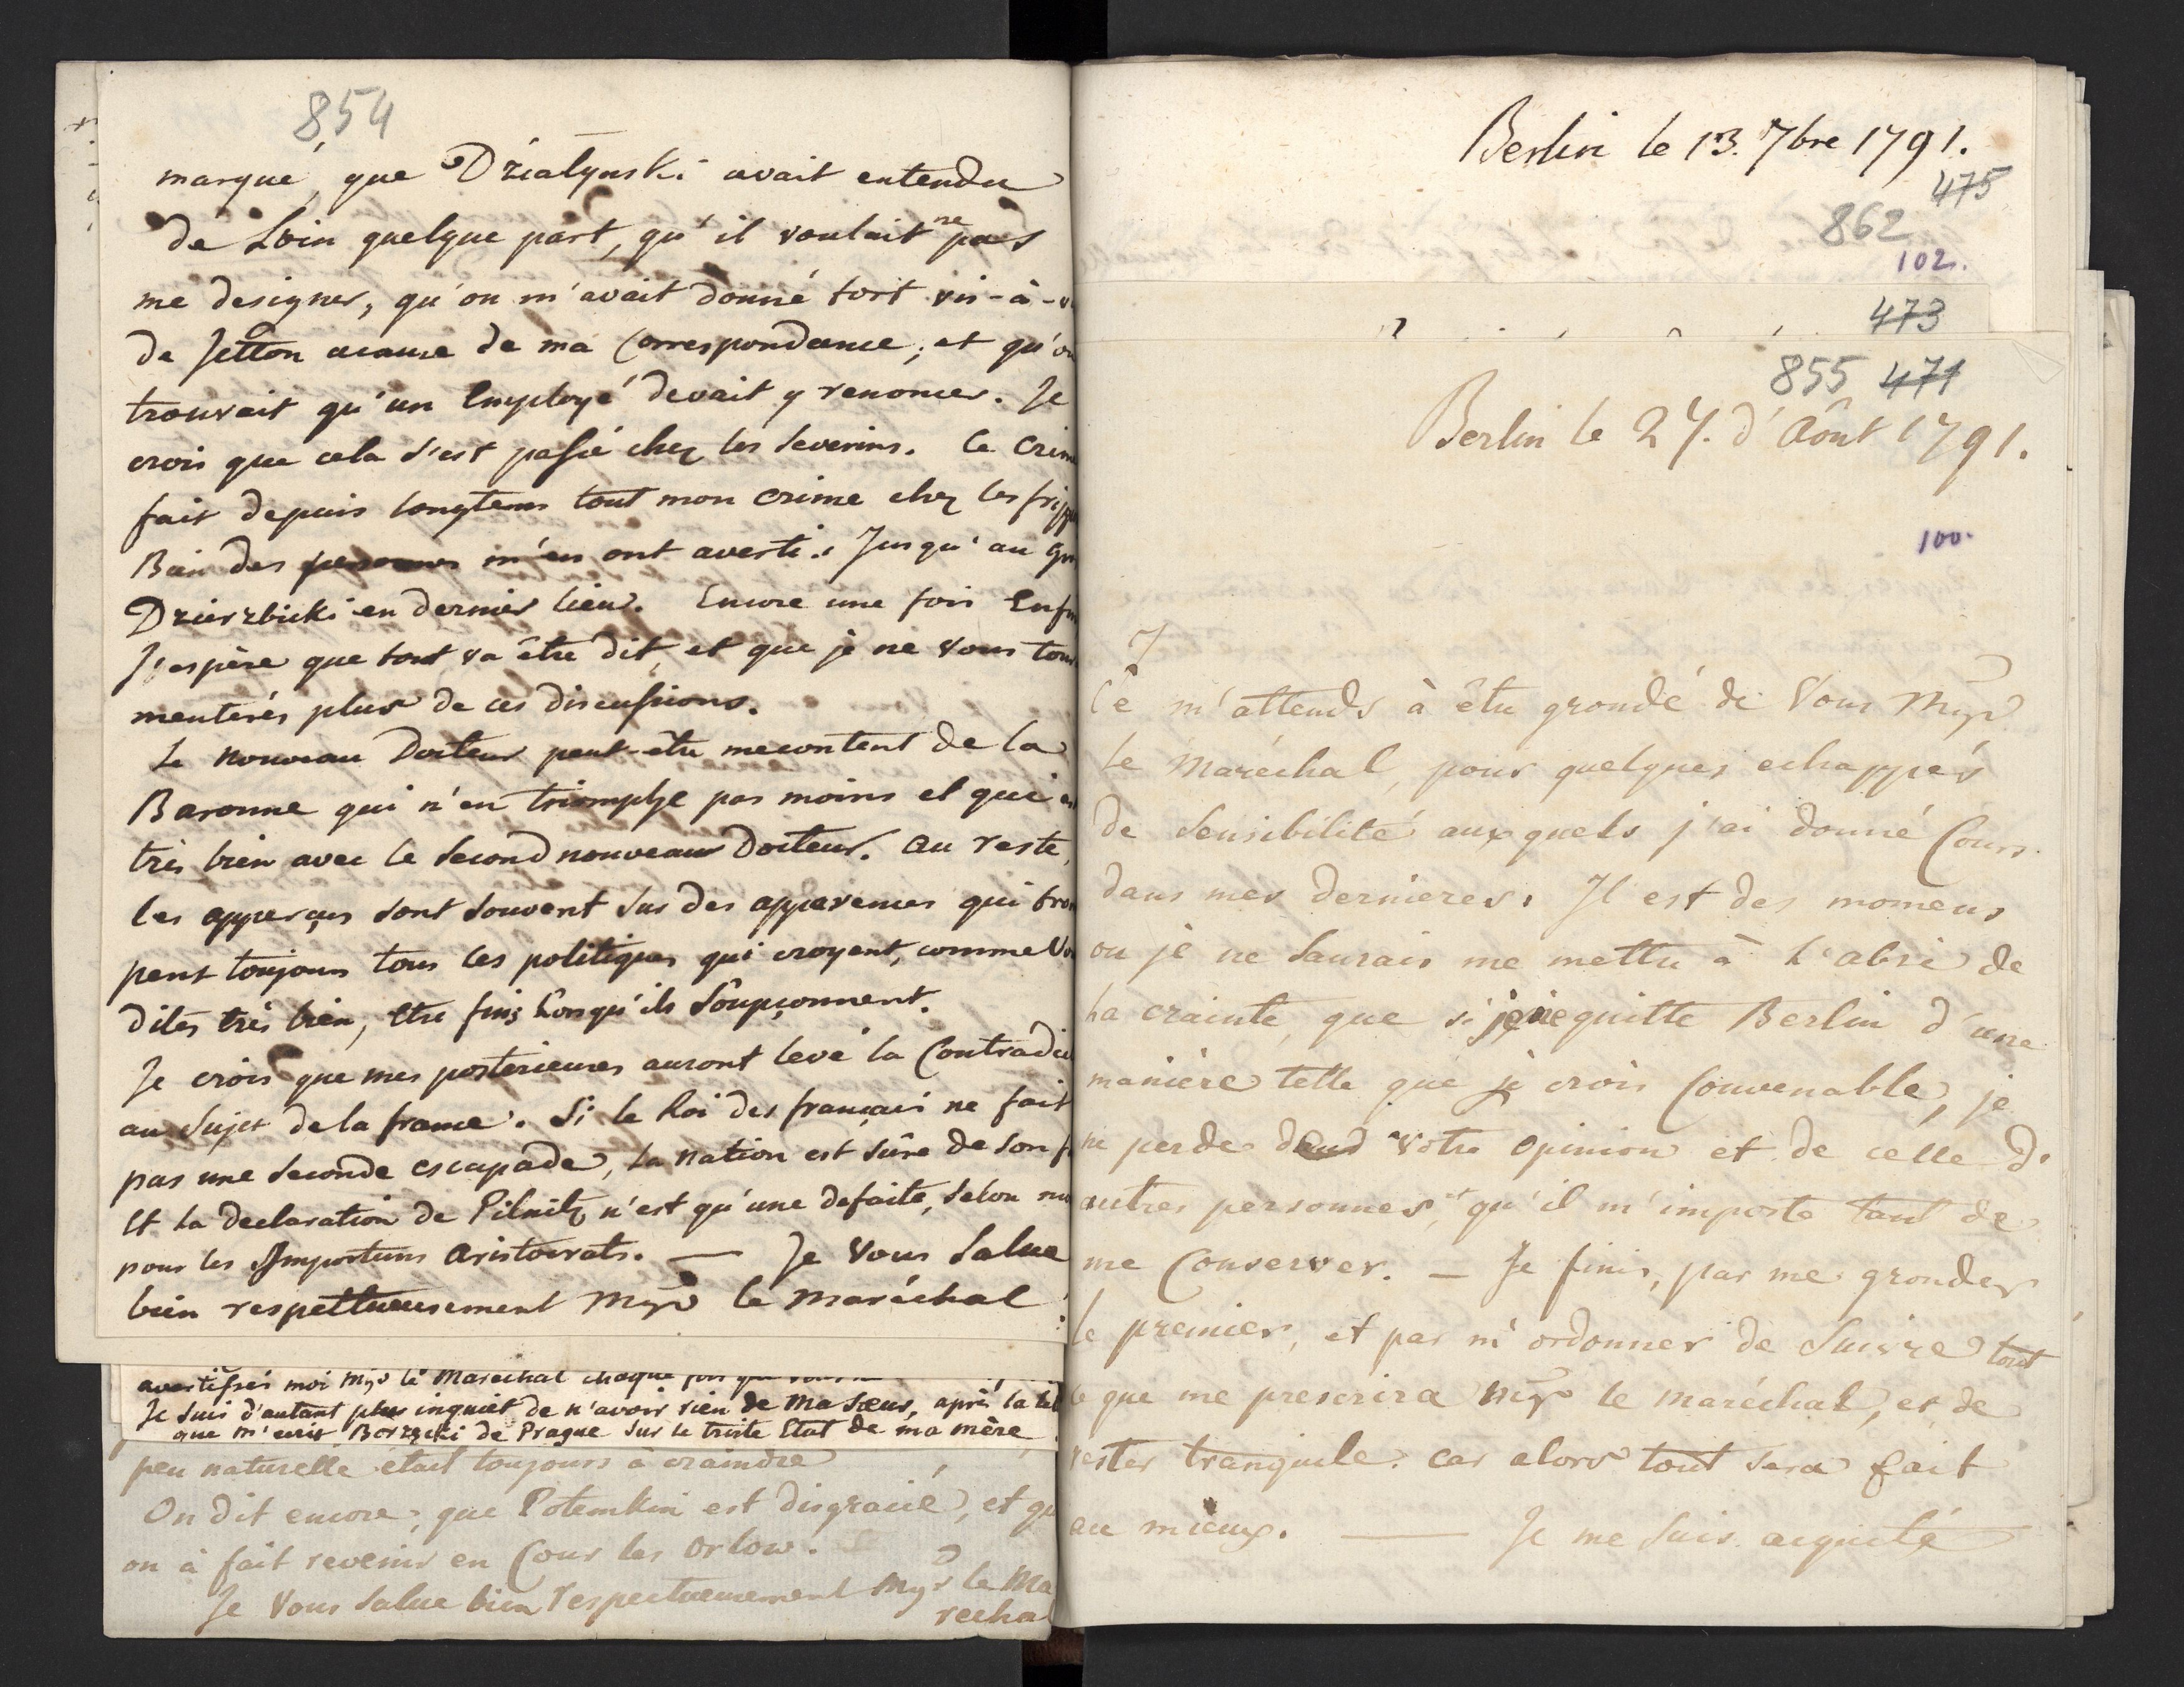 854
marqué, que Dzialynski avait entendu
de Loin quelque part, qu'il voulait ne pas
me designer, qu'on m'avait donné tort vis-à-v
de Jetton acause de ma Correspondance; et qu'on
trouvait qu'un Employé devait y renoncer. Je
crois que cela s'est passé chez les Severins. Ce Crime
fait depuis longtems tout mon crime chez les
des personnes m'en ont averti. Jusqu'au
Dzierzbicki en dernier lieu. Encore une fois Enfin
J'espère que tout va être dit, et que je ne vous tour
menterés plus de ces discussions.
Le nouveau Docteur peut-être mecontent de la
Baronne qui n'en triomphe pas moins et qui
très bien avec le Second nouveau Docteur. Au reste,
les apperçus sont souvent sur des apparences qui trom
pent toujours tous les politiques qui croyent, comme Vous
dites très bien, être fins Lorsqu'ils Soupçonnent.
Je crois que mes posterieures auront levé la Contradic
au Sujet de la france. Si le Roi des français ne fait
pas une Seconde escapade, la nation est sûre de son f
Et la declaration de Pilnitz n'est qu'une defaite, selon
pour les Importuns Aristocrats. — Je Vous Salue
bien respettueusement Mgr le maréchal
avertissés moi Mgr le Marechal chaque fois que
Je suis d'autant plus inquiet de n'avoir rien de Ma Sœur, après la
que m'ecrit Borzęcki de Prague sur le triste Etat de ma mère
peu naturelle etait toujours à craindre
On dit encore, que Potemkin est disgracié, et qu
on à fait revenir en Cour les Orlow.
Je Vous Salue bien respectueusement Mgr le Ma
rechal
Berlin le 13. 7bre 1791.
475
862
102.
473
855 471
Berlin le 27. d'Aôut 1791.
100.
Je m'attends à être grondé de Vous Mgr
le Maréchal, pour quelques echappés
de Sensibilité auxquels j'ai donné Cours
dans mes dernieres. Il est des momens
ou je ne Saurais me mettre à l'abri de
La crainte, que si je ne quitte Berlin d'une
manière telle que je crois Convenable, je
ne perde dans votre Opinion et de celle d'
autres personnes, qu'il m'importe tant de
me Conserver. — Je finis, par me gronder
le premier, et par m'ordonner de Suivre tout
ce que me prescrira Mgr le maréchal, et de
rester tranquile. car alors tout sera fait
au mieux. — Je me Suis acquité